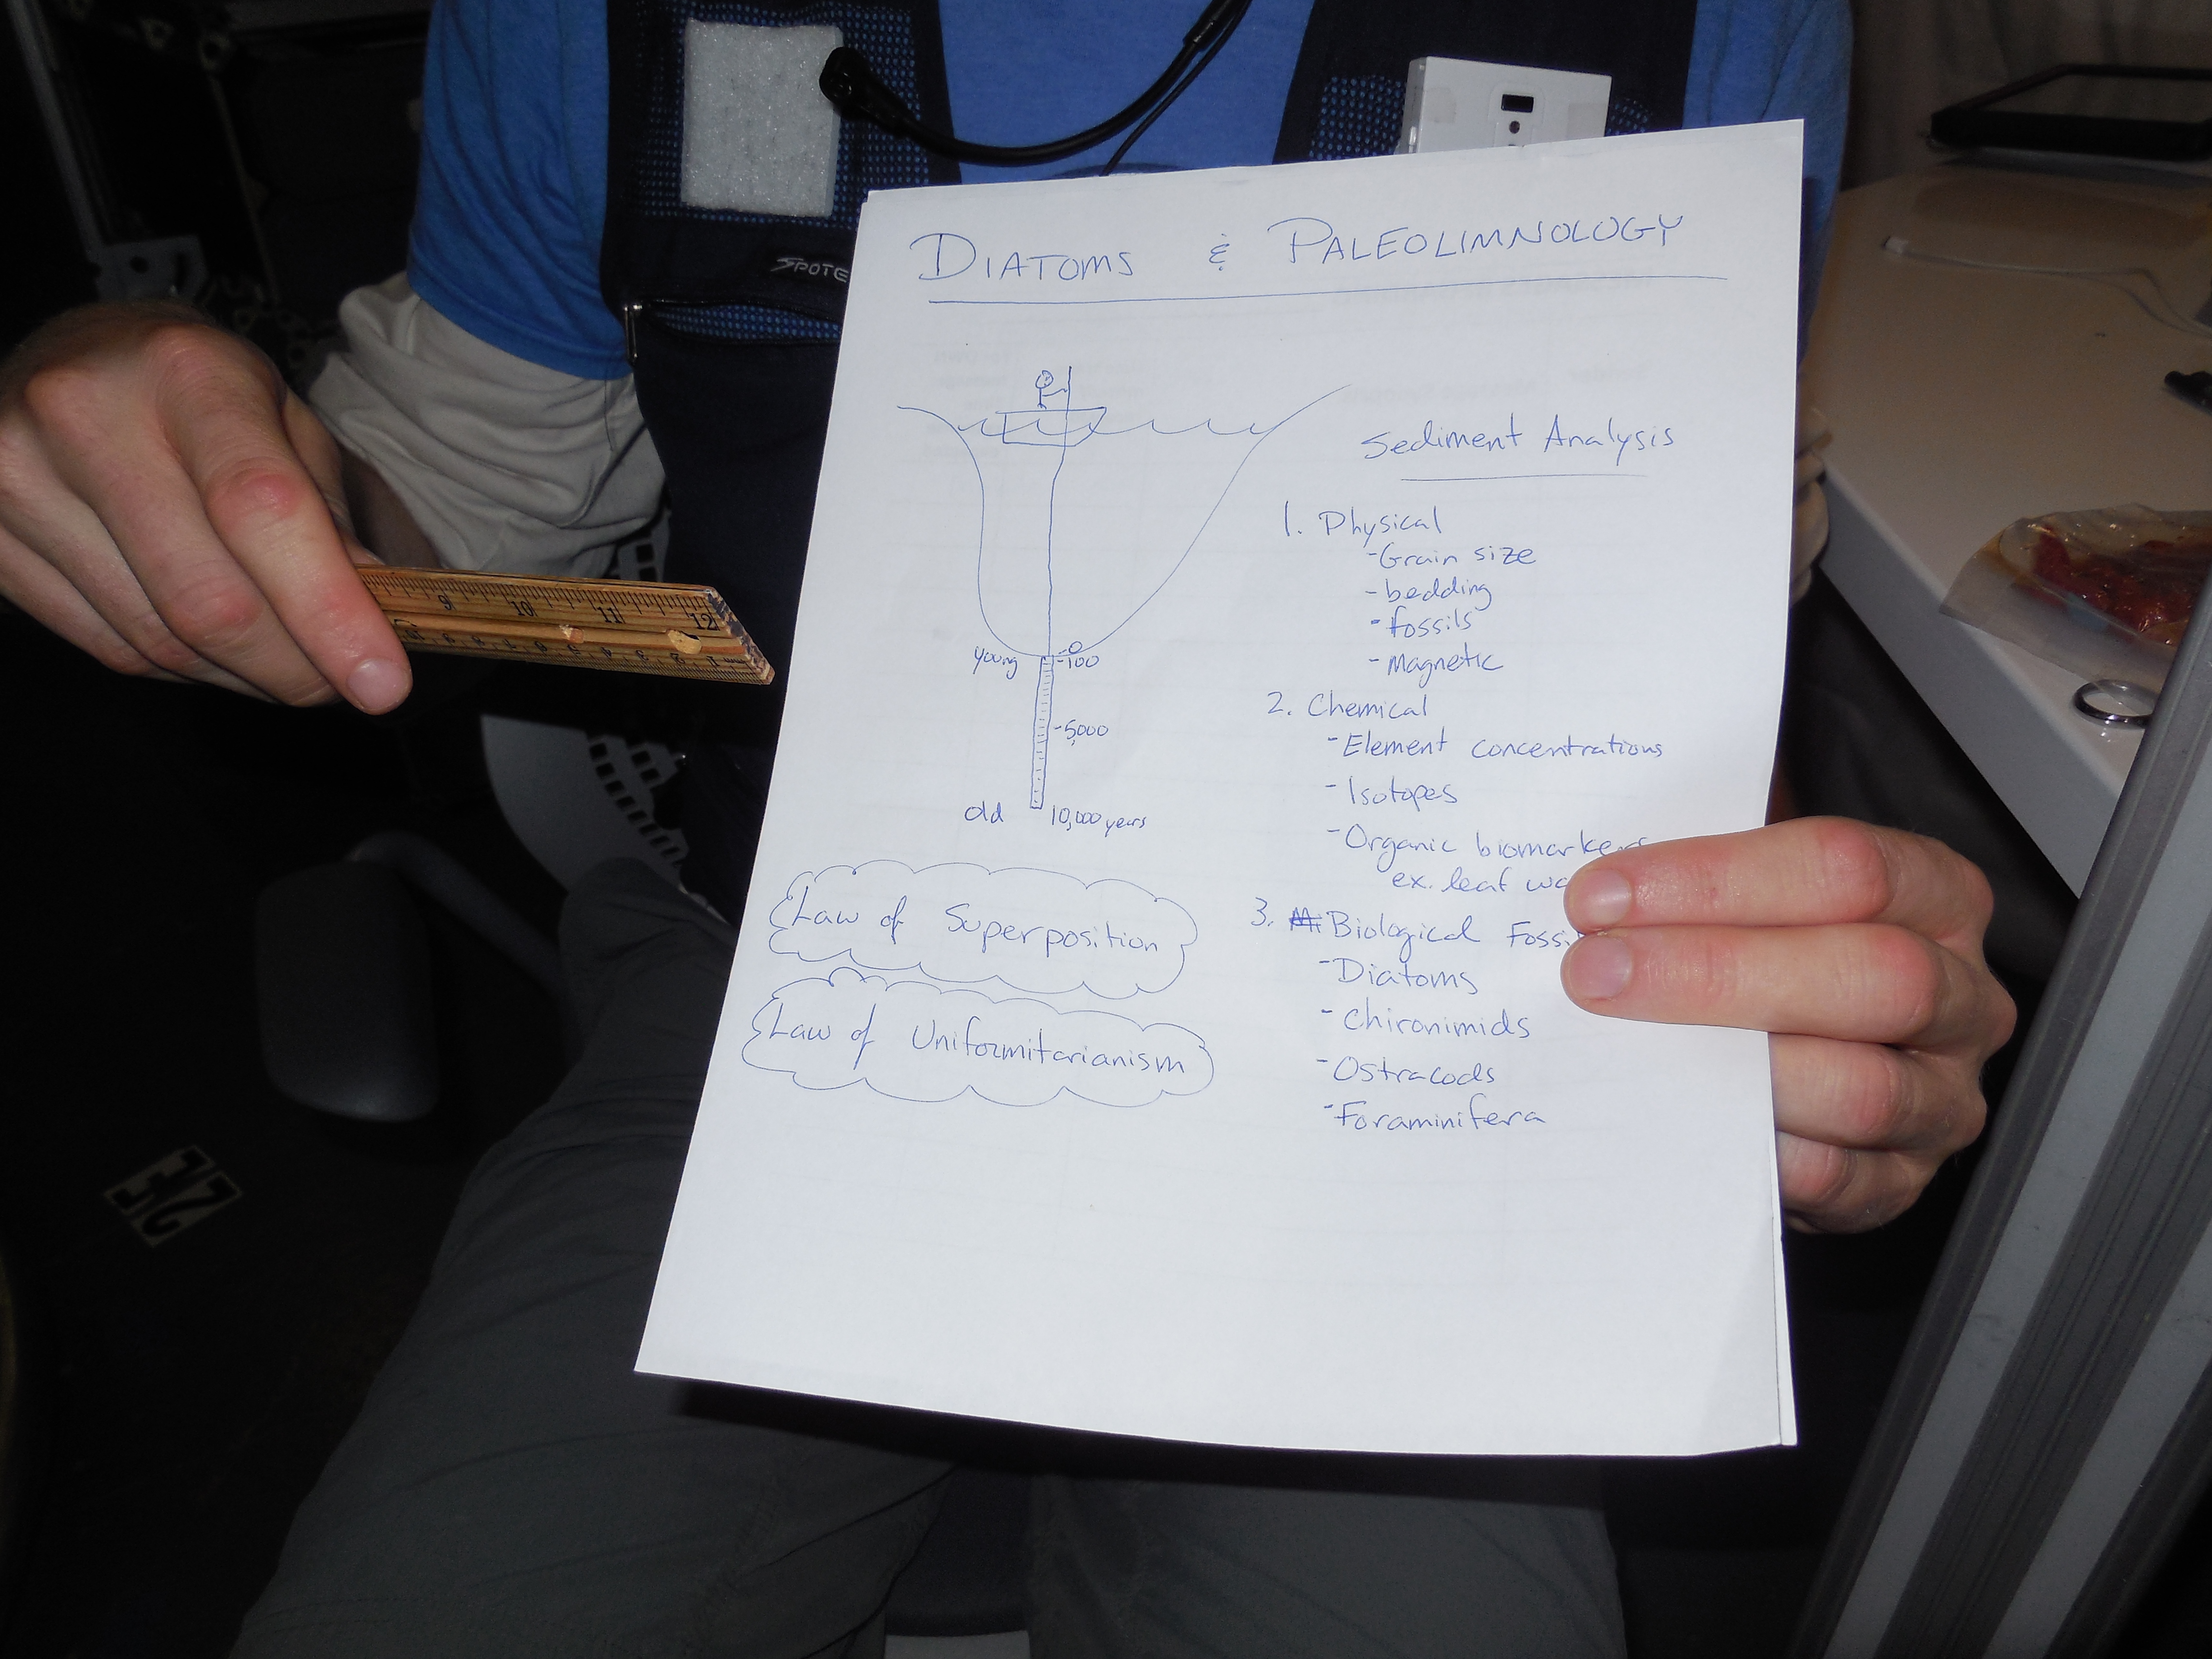 DIATOMS & PALEOLIMNOLOGY
Sediment Analysis
1. Physical
-Grain size
- bedding
- fossils
- Magnetic
2. Chemical
- Element concentrations
- Isotopes
- Organic biomarkers
ex. leaf
3. Biological
- Diatoms
- Chironimids
- Ostracods
- Foraminifera
young
-0
-100
-5,000
old
10,000 years
Law of Superposition
Law of Uniformitarianism
9 10 11 12